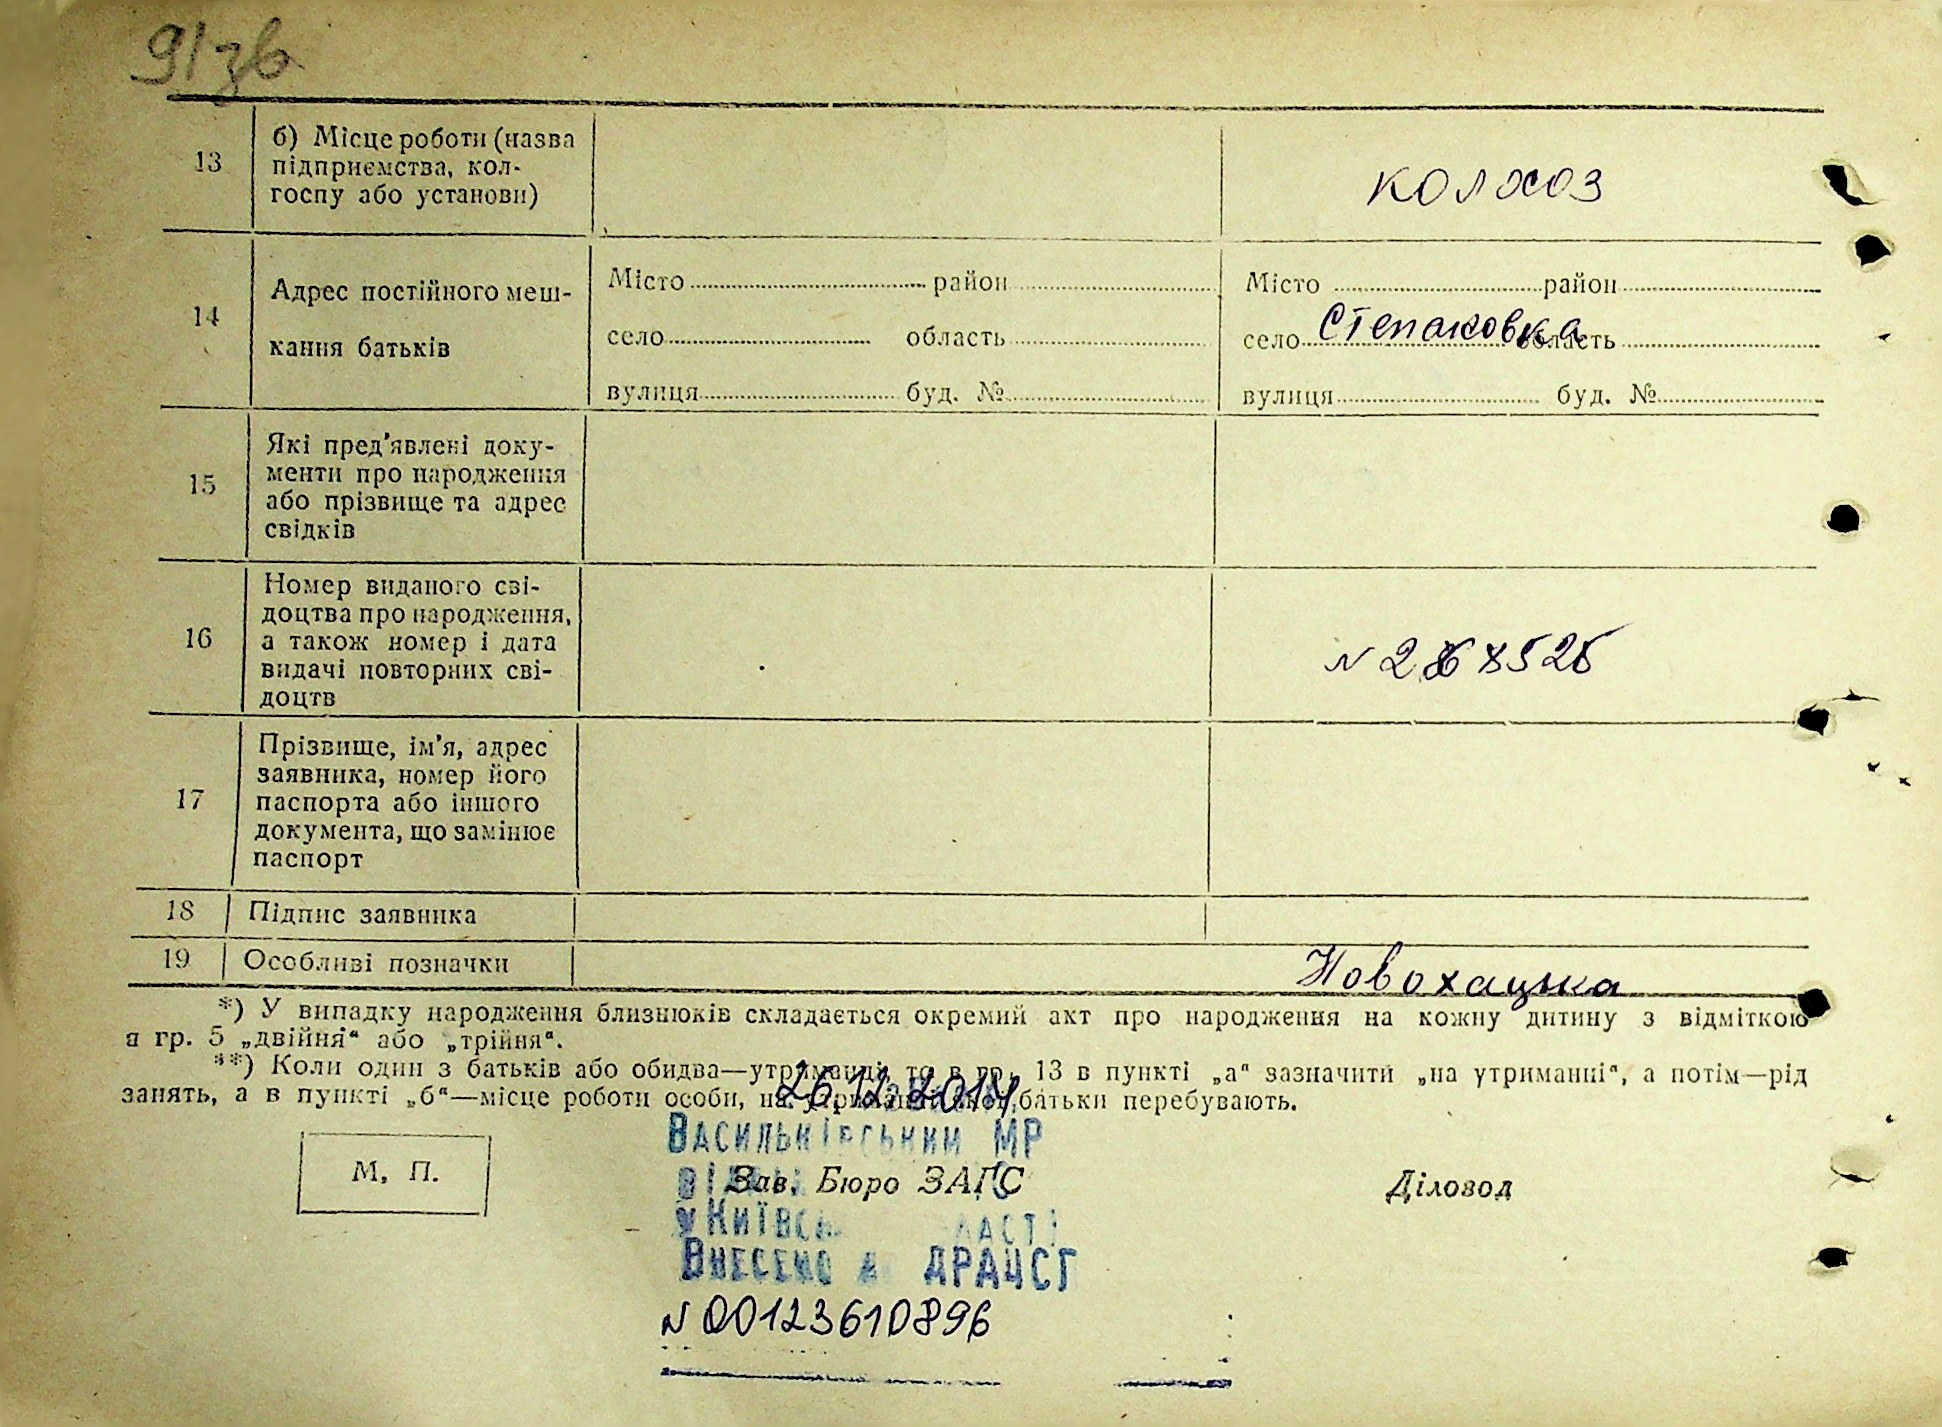 91 зв
13
б) Місце роботи (назва
підприємства, кол-
госпу або установи)
колхоз
14
Адрес постійного меш-
кання батьків
Місто район
село область
вулиця буд. №
Місто район
село Степаковка область
вулиця буд. №
15
Які пред'явлені доку-
менти про народження
або прізвище та адрес
свідків
16
Номер виданого сві-
доцтва про народження,
а також номер і дата
видачі повторних сві-
доцтв
17
Прізвище, ім'я, адрес
заявника, номер його
паспорта або іншого
документа, що замінює
паспорт
18 Підпис заявника
19 Особливі позначки
Новохацька
*) У випадку народження близнюків складається окремий акт про народження на кожну дитину з відміткою
в гр. 5 „двійня“ або „трійня“.
**) Коли один з батьків або обидва—утриманці, то в гр. 13 в пункті „а“ зазначити „на утриманні“, а потім—рід
занять, а в пункті „б“—місце роботи особи, на утриманні якої батьки перебувають.
26.12.2014
Васильківським МР
М. П.
Зав. Бюро ЗАГС
Діловод
у Київс
Внесено ДРАЦСГ
N 00123610896